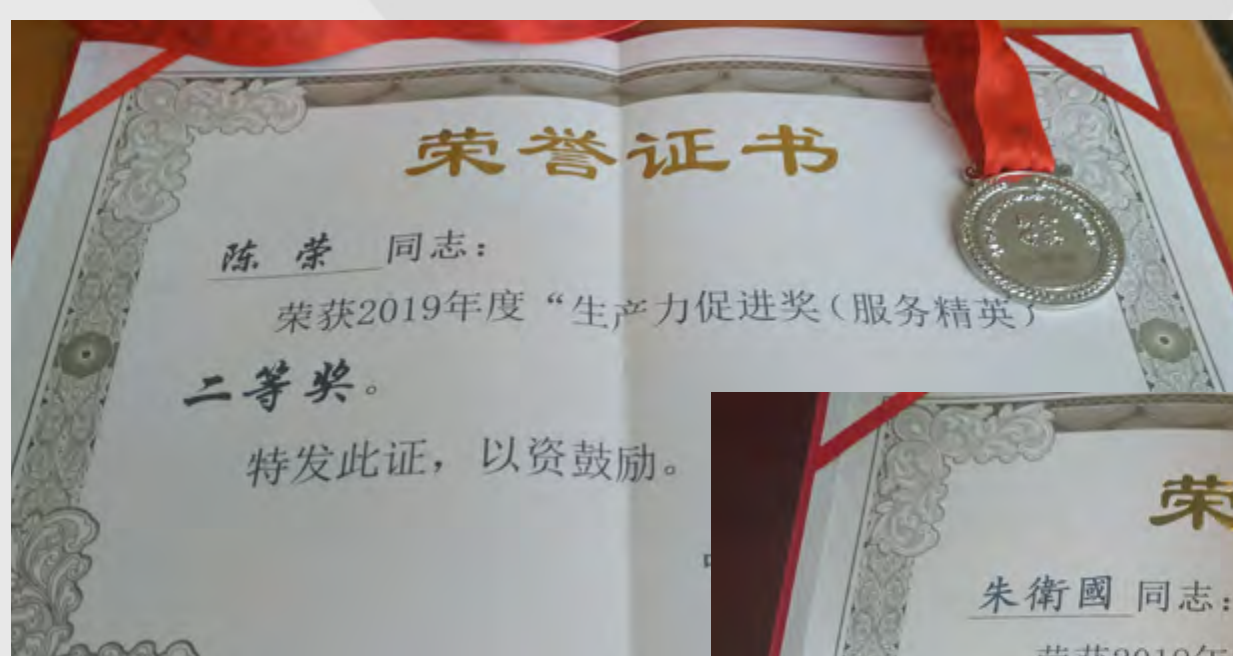 荣誉证书
陈 荣 同志：
荣获2019年度“生产力促进奖（服务精英）
二等奖。
特发此证，以资鼓励。
荣
朱衛國 同志：
荣获2019年